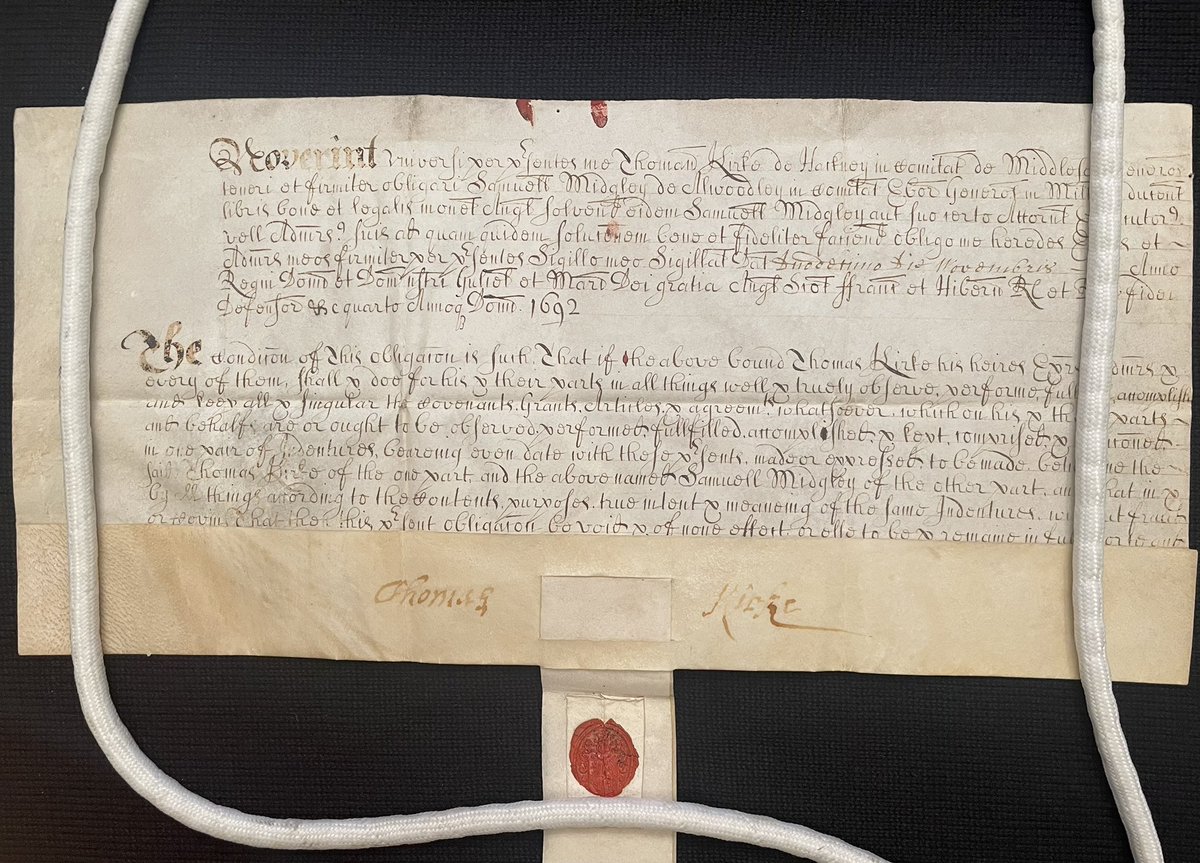 Noverint Universi per p'sentes me Thomam Kirke de Hackney in Comitat de Middles generos
teneri et firmiter obligari Samuell Midgley de Alwoodley in Comitat Ebor Generos in Mill ducent
libris bone et legalis monet Angl solvend eidem Samuell Midgley aut suo certo Attorn
vell Admrs suis ad quam quidem soluconem bone et fideliter faciend obligo me heredes et
Admrs meos firmiter per p'sentes Sigillo meo Sigillat Dat Duodecimo Die Novembris Anno
Regni Domi et Dom nostri Guliel et Marie Dei gratia Angl Scot ffranc et Hibern et fidei
Defensor &c quarto Annoq Domi. 1692
The Condicon of this obligacon is such, That if the above bound Thomas Kirke his heires &
every of them, shall & doe for his & their parts in all things well & truely observe, performe,
and keep all & singular the Covenants, Grants, Articles, & agreemts whatsoever, which on his & parts
and behalfs are or ought to be observed, performed, fullfilled, accomplished, & kept, comprised &
in one pair of Indentures, beareing even date with these p'sents, made or expressed to be made, the
said Thomas Kirke of the one part, and the above named Samuell Midgley of the other part, in &
by all things according to the Contents, purposes, true intent & meaneing of the same Indentures,
that then this p'sent obligacon be void & of none effect, or else to be & remaine in
Thomas Kirke